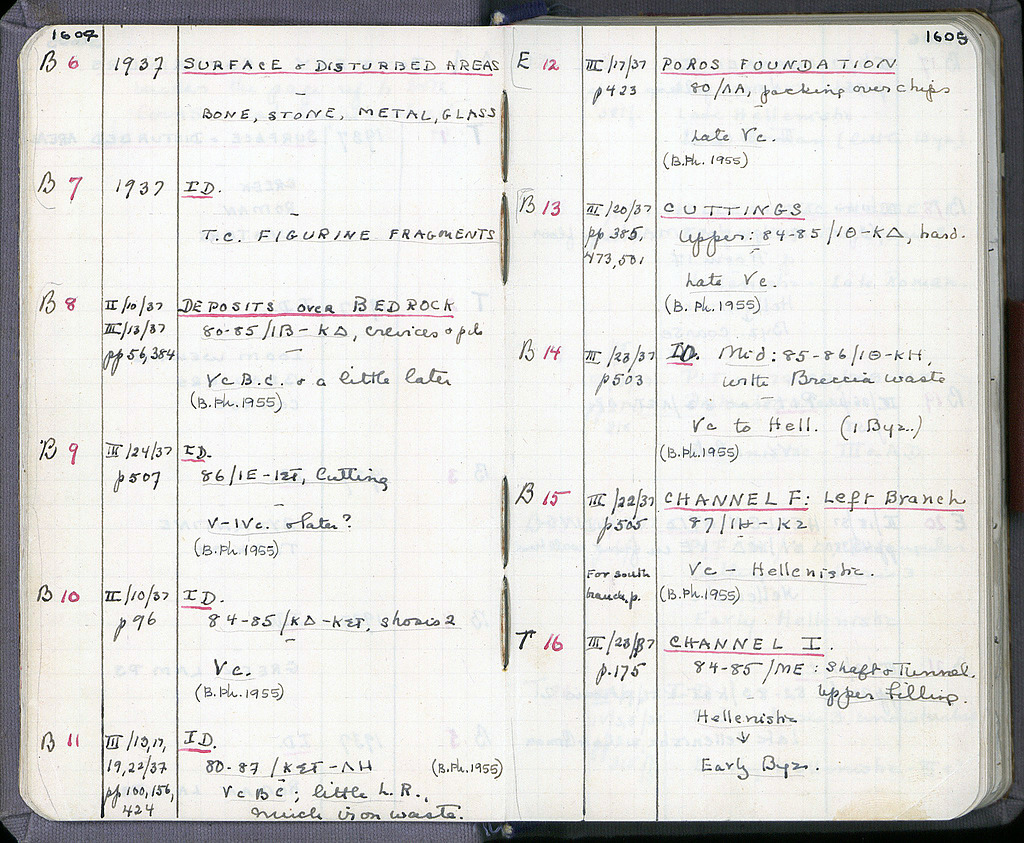 1604
B 6 1937 SURFACE & DISTURBED AREAS
–
BONE, STONE, METAL, GLASS
B 7 1937 ID.
–
T.C. FIGURINE FRAGMENTS
B 8 II/10/37 DEPOSITS over BEDROCK
III/13/37 80-85/ΙΒ-ΚΔ, crevices &
pp 56, 384
Vc B.C. & a little later
(B.Ph. 1955)
B 9 III/24/37 ID.
p 507 86/ΙΕ-ΙΣΤ, Cutting
–
V-IVc. & later?
(B.Ph. 1955)
B 10 III/10/37 ID.
p 96 84-85/ΚΔ-ΚΣΤ,
–
Vc.
(B.Ph. 1955)
B 11 III/13,17, ID.
19,22/37 80-87/ΚΣΤ-ΛΗ (B.Ph. 1955)
pp 100,156, Vc BC; little L.R.,
424 much iron waste.
1605
E 12 III/17/37 POROS FOUNDATION
p 423 80/ΛΛ, packing over chips
–
Late Vc.
(B.Ph. 1955)
B 13 III/20/37 CUTTINGS
pp 385, Upper: 84-85/ΙΘ-ΚΔ, hard.
473,501
Late Vc.
(B.Ph. 1955)
B 14 III/23/37 ID. Mid: 85-86/ΙΘ-ΚΗ,
p 503 with Breccia waste
–
Vc to Hell. (1 Byz.)
(B.Ph. 1955)
B 15 III/22/37 CHANNEL F: Left Branch
p 505 87/ΙΗ-Κ2
–
Vc - Hellenistic.
For south
branch, p. (B.Ph. 1955)
T 16 III/23/37 CHANNEL I.
p. 175 84-85/ΜΕ: Shaft & Tunnel.
Upper filling.
Hellenistic
↓
Early Byz.